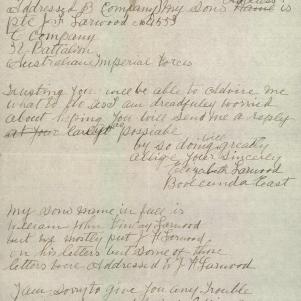 address
Addressed B Company My Sons Name is
Pte J. H. Farwood No 4553
C Company
Battalion
Australian Imperial Forces
Trusting You will be able to advise me
what to do as I am dreadfully worried
about hoping You will send me a reply
at your
by so doing will greatly
oblige Your Sincerely
Elizabeth Farwood
Booleunda East
My Sons name in full is
William John Farwood
but he mostly put J H Farwood
on his letters but some of those
letters were Addressed W J H Farwood
I am Sorry to give You any Trouble